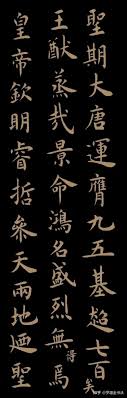 聖期大唐運膺九五基超七百矣
王猷蒸哉景命鴻名盛烈無得焉
皇帝欽明睿哲叅天兩地廼聖